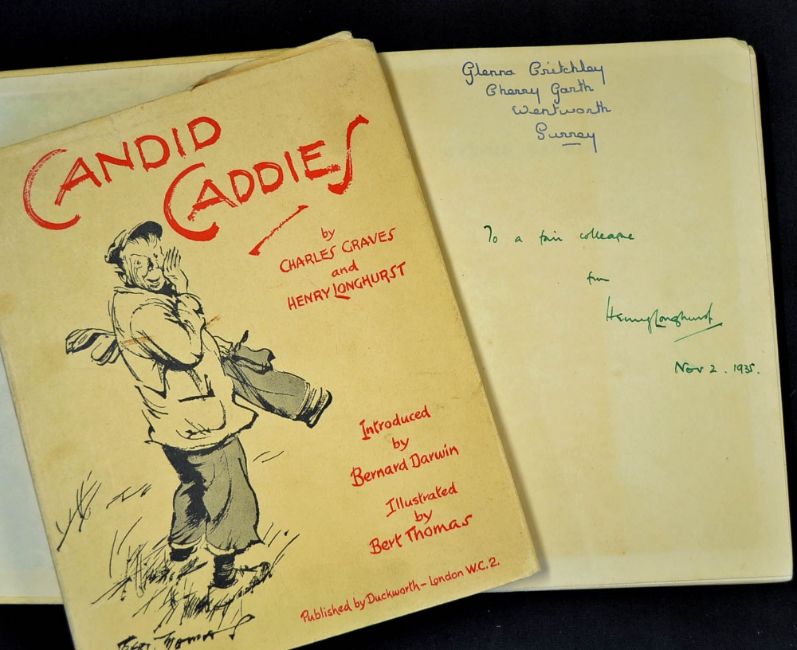 CANDID
CADDIES
by
CHARLES GRAVES
and
HENRY LONGHURST
Introduced
by
Bernard Darwin
Illustrated
by
Bert Thomas
Published by Duckworth – London W.C.2.
Bert Thomas
Glenna Critchley
Cherry Garth
Wentworth
Surrey
To a fair colleague
from
Henry Longhurst
Nov 2. 1935.